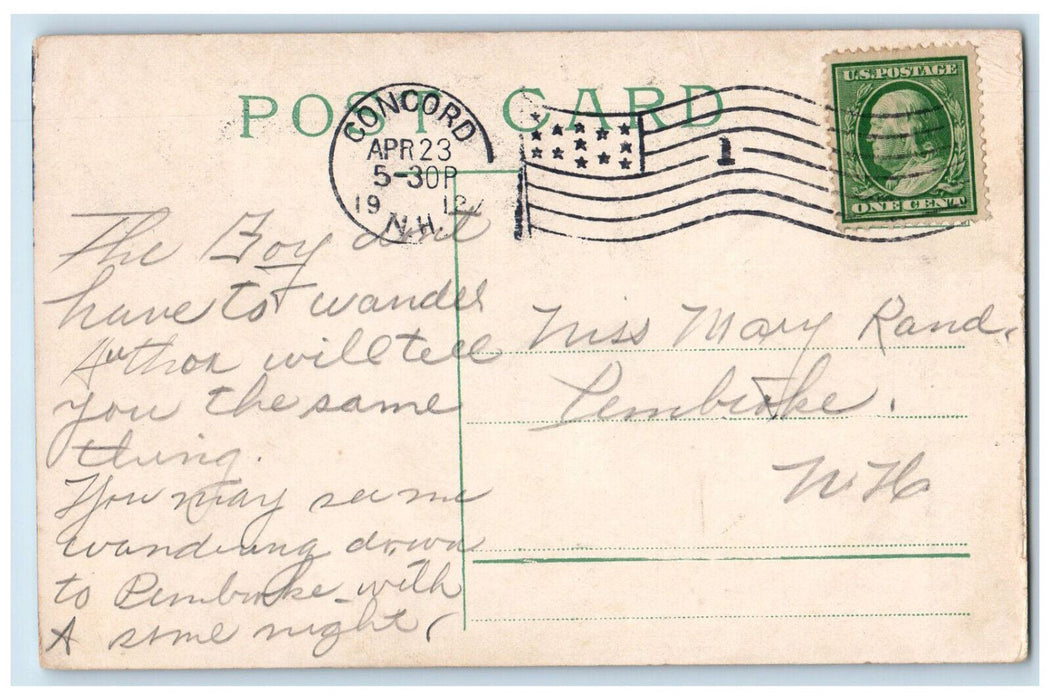 POST CARD
U.S.POSTAGE
ONE CENT
CONCORD
APR 23
5-30P
19 12
N.H.
1
The Boy don't
have to wander
Author will tell
you the same
thing.
You may see me
wandering down
to Pembroke with
A some night
Miss Mary Rand.
Pembroke.
N H